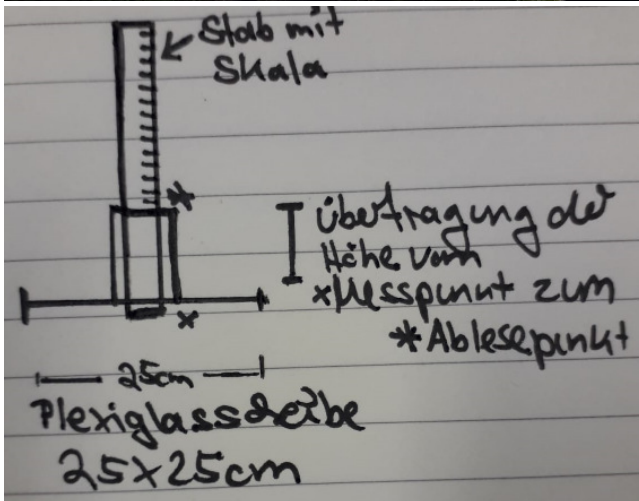 Stab mit
Skala
*
Übertragung der
Höhe vom
xMesspunkt zum
*Ablesepunkt
x
25cm
Plexiglasscheibe
25x25cm